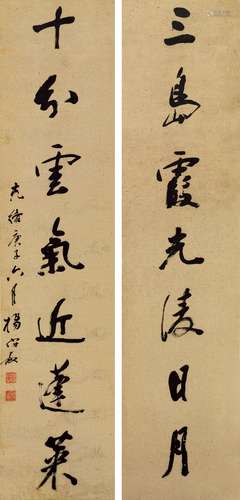 三島霞光凌日月
十分雲氣近蓬萊
光緒庚子六月 楊